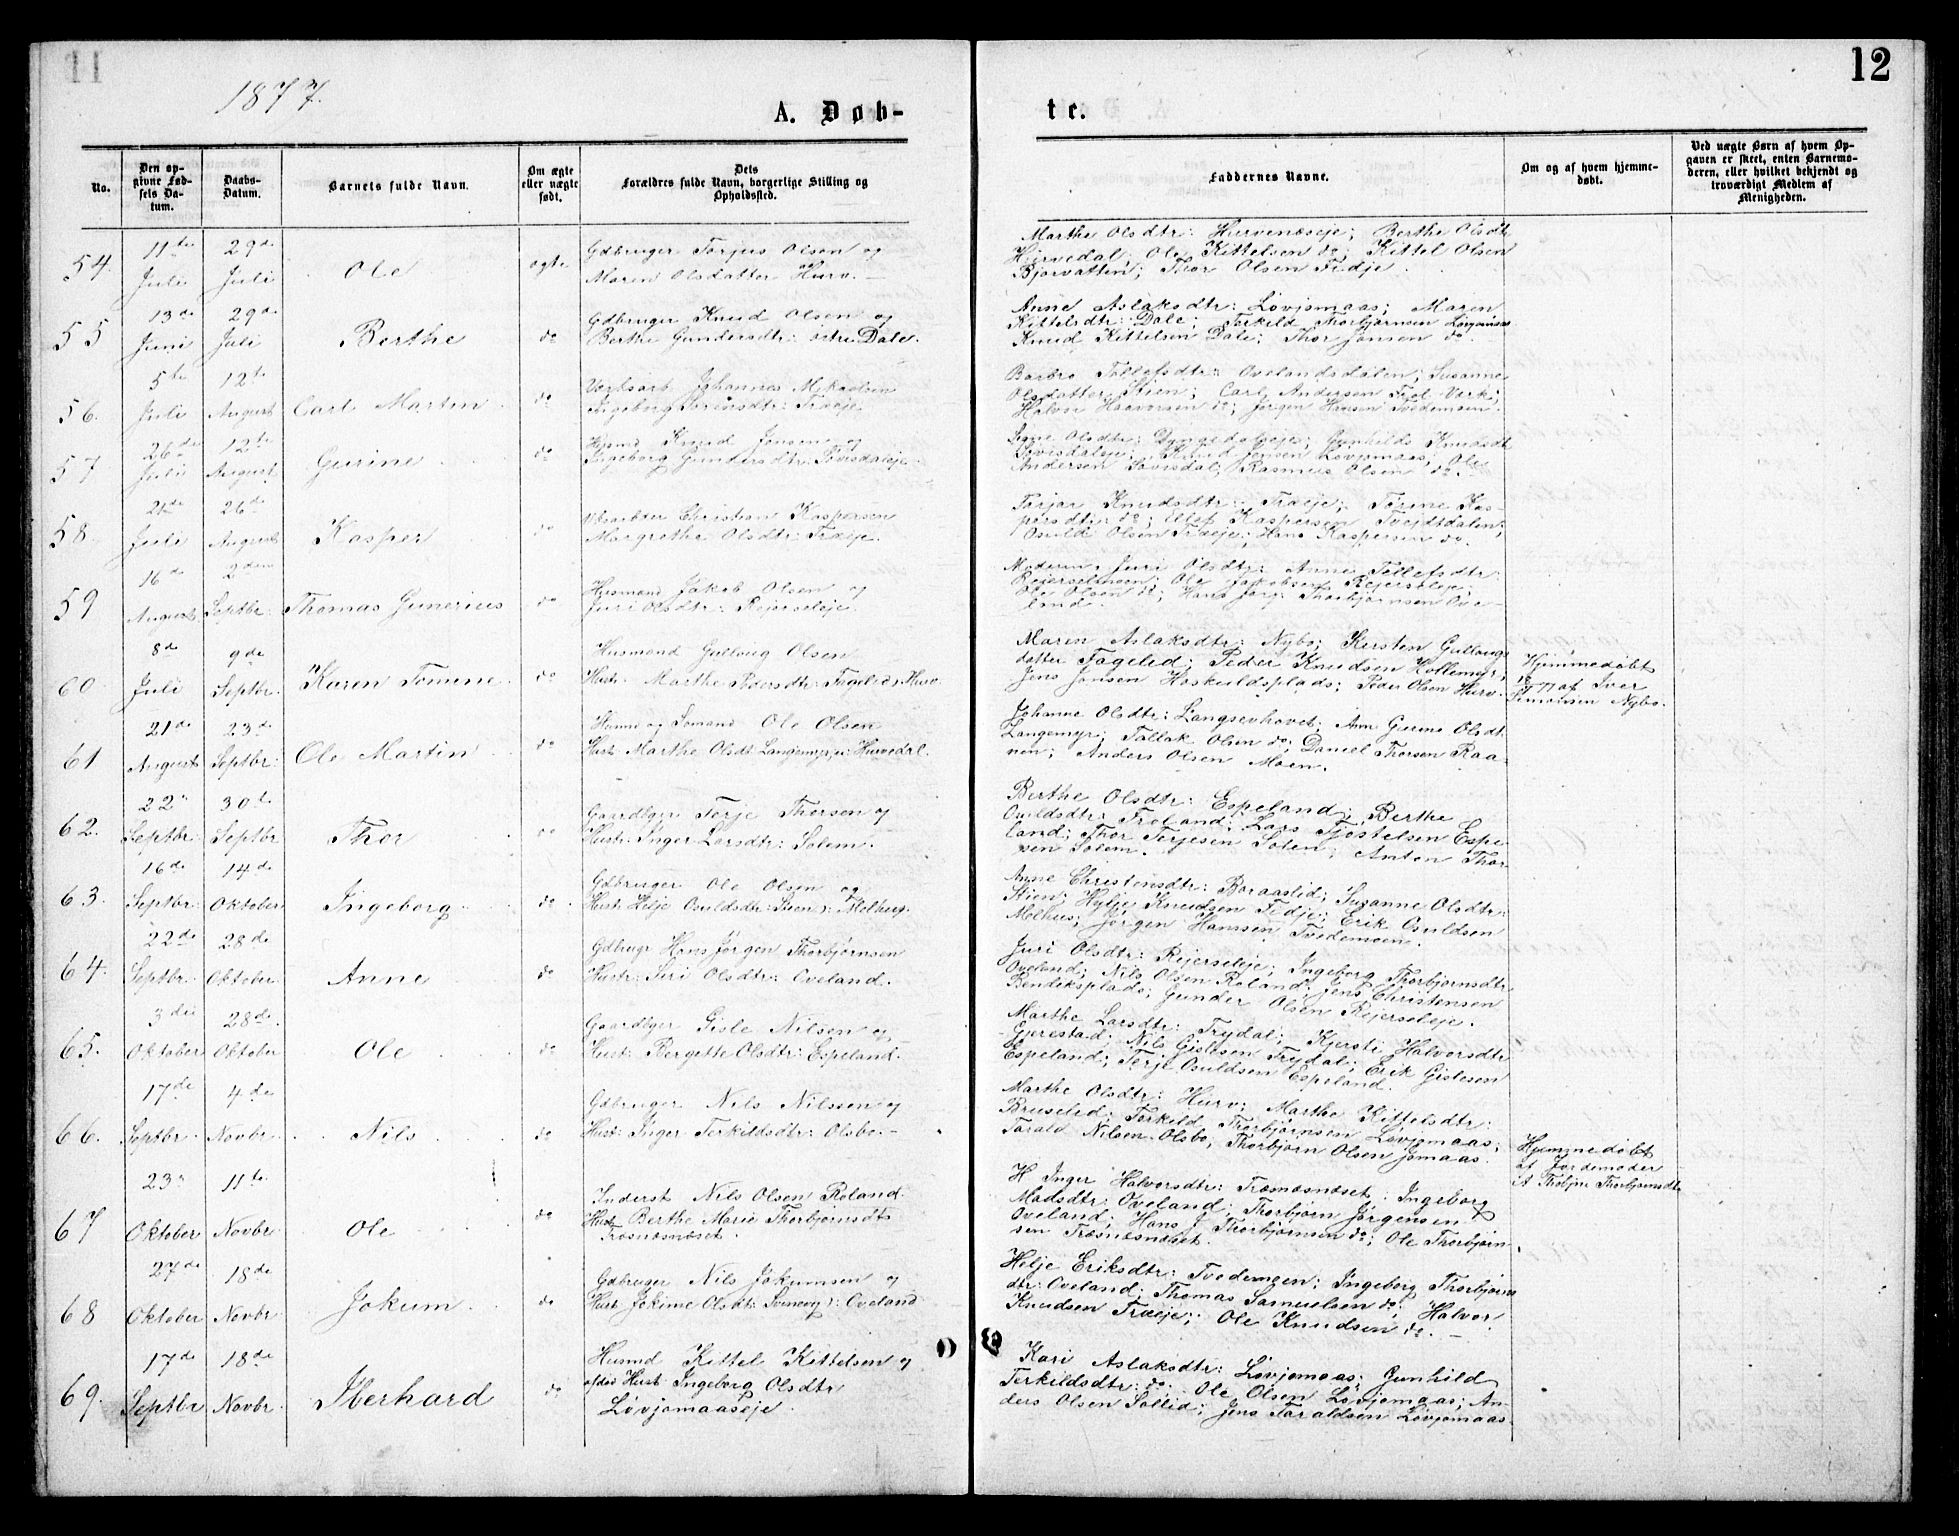 11
12
1877.
A. Døb-
te.
No.
Den op-
givne Fød-
sels Da-
tum.
Daabs-
Datum.
Barnets fulde Navn.
Om ægte
eller uægte
født.
Dets
Forældres fulde Navn, borgerlige Stilling og
Opholdssted.
Faddernes Navne.
Om og af hvem hjemme-
døbt.
Ved uægte Børn af hvem Op-
gaven er skeet, enten Barnemo-
deren, eller hvilket bekjendt og
troværdigt Medlem af
Menigheden.
54.
11te
Juli
29de
Juli
Ole
ægte
Gdbruger Torjus Olsen og
Maren Olsdatter Hurv.
Marthe Olsdtr: Hurvenæseje; Berthe Olsdtr
Hurvedal; Ole Kittelsen do; Kittel Olsen
Bjorvatten; Thor Olsen Fidje.
55
13de
Juni
29de
Juli
Berthe
do
Gdbruger Knud Olsen og
Berthe Gundersdtr: østre Dale.
Anne Aslaksdtr: Løvjomaas; Maren
Kittelsdtr: Dale; Terkild Thorbjørnsen
Knud Kittelsen Dale; Thor Jensen do.
56.
5te
Juli
12te
August
Carl Martin
do
Johannes Mikaelsen
Ingeborg Sørensdtr: Træeje.
Barbro Tollefsdtr: Ovelandsdalen; Susanne
Olsdatter Stien; Carl Andersen Fiel Værk;
Halvor Haavorsen do; Jørgen Hansen Tvedemoen.
57
26de
Juli
12te
August
Gurine
do
Husmd Knud Jensen og
Ingeborg Gundersdtr:
Signe Olsdtr: Gunhilde Knudsdt
Knud Jensen Løvjomaas; Ole
Andersen Rasmus Olsen do.
58.
Juli
26de
August
Kasper
do
Christian Kaspersen
Margrethe Olsdtr: Træeje.
Torjor Knudsdtr: Træeje; Tomine Kas-
persdtr: do; Ellef Kaspersen Tveitdalen;
Osuld Olsen Træeje; Hans Kaspersen do.
59
16de
August
2den
Septbr:
Thomas Gunerius
do
Husmand Jakob Olsen og
Juri Olsdtr: Rejerseleje.
Moderen, Juri Olsdtr: Anne Tollefsdtr:
Rejerselmoen; Ole Jakobsen Rejerseleje;
Ole Olsen do; Hans Jørg: Thorbjørnsen Ove-
land.
60
8de
Juli
9de
Septbr.
Karen Tomine
do
Husmand Gulloug Olsen
Hustr. Marthe Pedersdtr: Fagelid, Hurv.
Maren Aslaksdtr: Nybo; Kirsten Gulloug-
datter Fagelid; Peder Knudsen Hollemyr;
Jens Jensen Høskuldsplads; Peder Olsen Hurv.
Hjemmedøbt
af Iver
Simonsen Nybo.
61
21de
August
23de
Septbr:
Ole Martin
do
Husmd og Sømand Ole Olsen
Hust: Marthe Olsdt. Langemyr, u: Hurvedal.
Johanne Olsdtr: Langsevhovet; Ann Gurine Olsdt
Langemyr; Tallak Olsen do; Daniel Thorsen Raa-
nen; Anders Olsen Moen.
62.
22de
Septbr.
30te
Septbr
Thor
do
Gaardbger Terje Thorsen og
Hustr: Inger Larsdtr: Solem.
Berthe Olsdtr: Espeland; Berthe
Osuldsdtr: Froland; Lars Tjøstelsen Espe-
land; Thor Terjesen Solem; Anton Thor-
sen Solem.
63.
16de
Septbr.
14de
Oktober
Ingeborg
do
Gdbruger Ole Olsen og
Hust: Helje Osuldsdtr: Stien): Molhus.
Anne Christensdtr: Boraaslid; Susanne Olsdtr:
Stien; Hylje Knudsen Fidje; Erik Osuldsen
Molhus; Jørgen Hanssen Tvedemoen.
64.
22de
Septbr.
28de
Oktober
Anne
do
Gdbrugr Hans Jørgen Thorbjørnsen
Hustr: Siri Olsdtr: Oveland.
Juri Olsdtr: Rejerseleje; Ingeborg Thorbjørnsdtr
Oveland; Nils Olsen Roland; Jens Christensen
Bendiksplads; Gunder Olsen Rejerseleje.
65.
3die
Oktober
28de
Oktober
Ole
do
Gaardbger Gisle Nilsen og
Hust: Bergette Olsdtr: Espeland.
Marthe Larsdtr: Trydal; Kjersti Halvorsdtr
Gjerestad; Nils Gislesen Trydal; Erik Gislesen
Espeland; Terje Osuldsen Espeland.
66.
17de
Septbr
4de
Novbr
Nils
do
Gdbruger Nils Nilssen og
Hust: Inger Terkildsdtr: Olsbo.
Marthe Olsdtr: Hurv; Marthe Kittelsdtr:
Bruselid; Terkild Thorbjørnsen Løvjomaas;
Tarald Nilsen Olsbo; Thorbjørn Olsen Jomaas.
67
23de
Oktober
11te
Novbr
Ole
do
Inderst Nils Olsen Roland
Hust: Berthe Marie Thorbjørnsdtr
Træsnæsnæset.
H Inger Halvorsdtr: Træsnæsnæset; Ingeborg
Madsdtr: Oveland; Thorbjørn Jørgensen
Oveland; Hans J Thorbjørnsen do; Ole Thorbjørn-
sen Træsnæsnæset.
Hjemmedøbt
af Jordemoder
Thorbjørnsdtr
68
27de
Oktober
18de
Novbr
Jokum
do
Gdbruger Nils Jokumsen og
Hust Jokime Olsdt: Oveland
Helje Eriksdtr: Tvedemoen; Ingeborg Thorbjørns
dtr: Oveland; Thomas Samuelsen do; Halvor
Knudsen Træeje; Ole Knudsen do.
69.
17de
Septbr
18de
Novbr.
Iberhard
do
Husmd Kittel Kittelsen og
afdøde Hust: Ingeborg Olsdtr
Løvjomaaseje.
Kari Aslaksdtr: Løvjomaas; Gunhild
Terkildsdtr: do; Ole Olsen Løvjomaas; An-
ders Olsen Sollid; Jens Taraldsen Løvjomaas